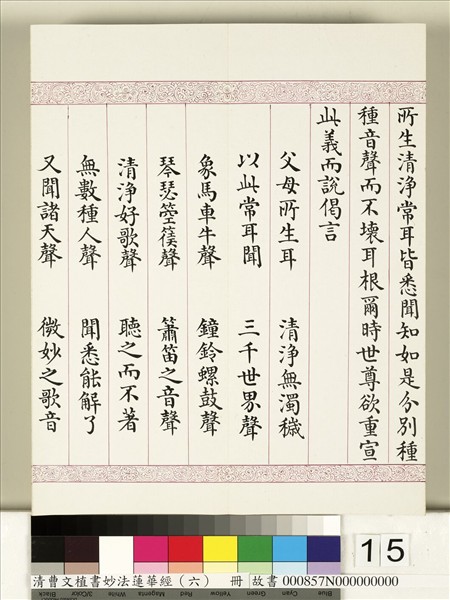 所生清淨常耳皆悉聞知如是分別種
種音聲而不壞耳根爾時世尊欲重宣
此義而說偈言
父母所生耳　清淨無濁穢
以此常耳聞　三千世界聲
象馬車牛聲　鐘鈴螺鼓聲
琴瑟箜篌聲　簫笛之音聲
清淨好歌聲　聽之而不著
無數種人聲　聞悉能解了
又聞諸天聲　微妙之歌音
15
Black 3/Color White Magenta Red Yellow Green Cyan Blue
清曹文植書妙法蓮華經（六）　冊　故書 000857N000000000